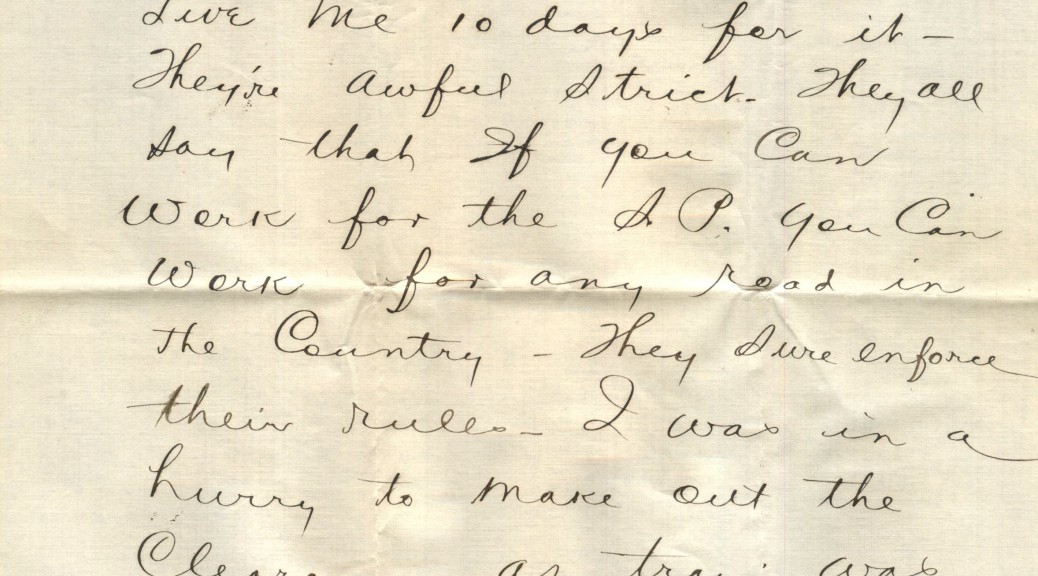 Give Me 10 days for it -
They're awful Strict - They all
say that If you Can
Work for the S.P. you Can
Work for any road in
the Country - They Sure enforce
their rules - I was in a
hurry to make out the
as train was